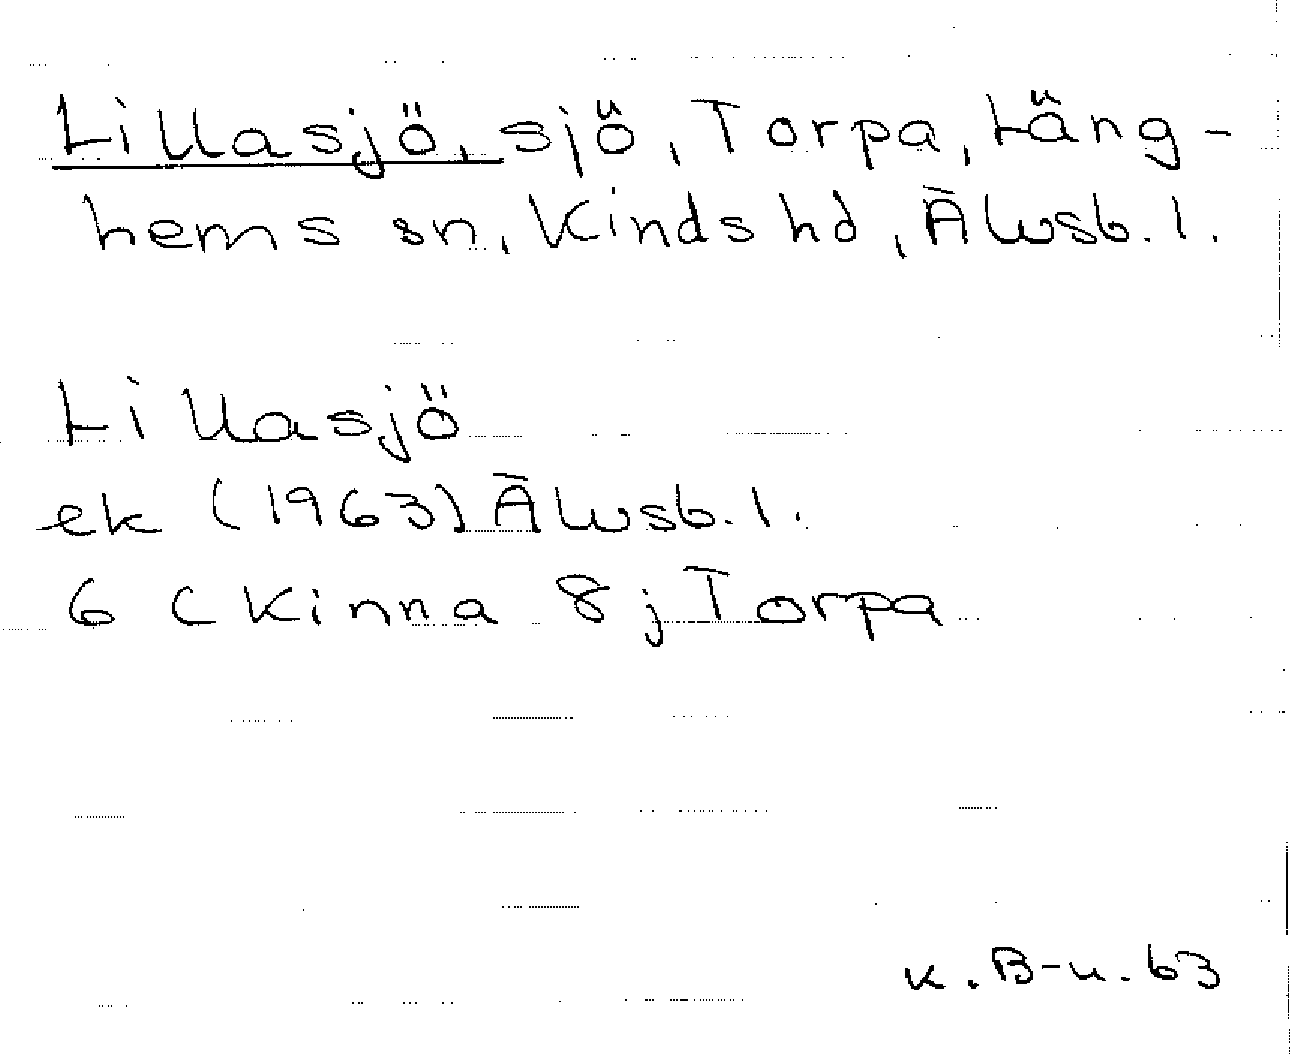 Lillasjö, sjö, Torpa, Läng-
hems sn, Kinds hd, Älvsb. l.
Lillasjö
ek (1963) Älvsb. l.
6 C Kinna 8 j Torpa
K. B-u. 63